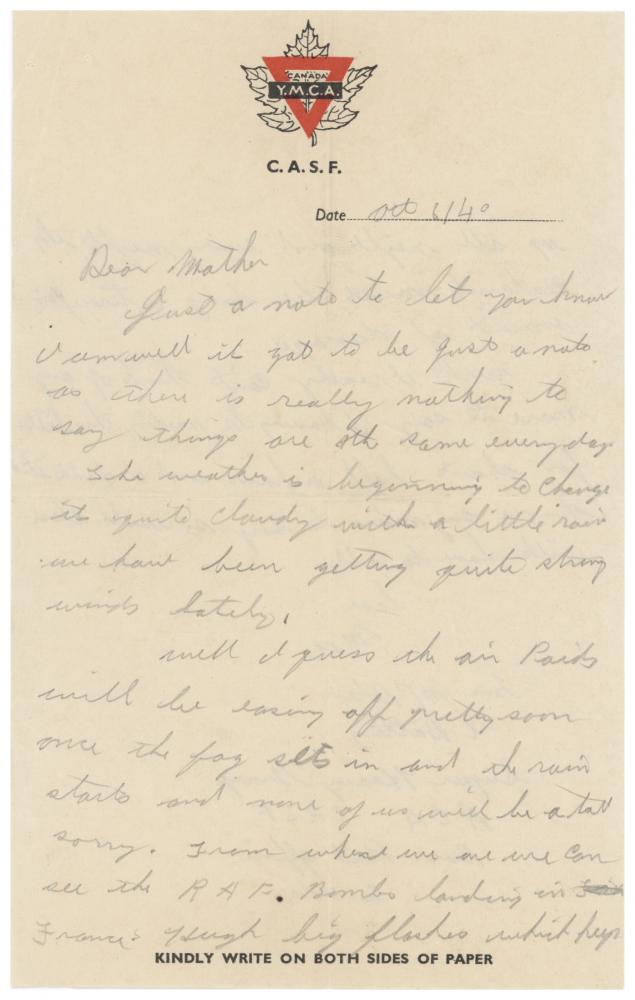 CANADA
Y.M.C.A.
C. A. S. F.
Date Oct 6/40
Dear Mother
Just a note to let you know
I am well it got to be just a note
as there is really nothing to
say things are the same everyday
The weather is beginning to change
it quite cloudy with a little rain
we have been getting quite strong
winds lately.
well I guess the air Raids
will be easing off pretty soon
once the fog sets in and the rain
starts and none of us will be a tall
sorry. From where we are we can
see the R A F. Bombs landing in
France. Hugh big flashes which keeps
KINDLY WRITE ON BOTH SIDES OF PAPER